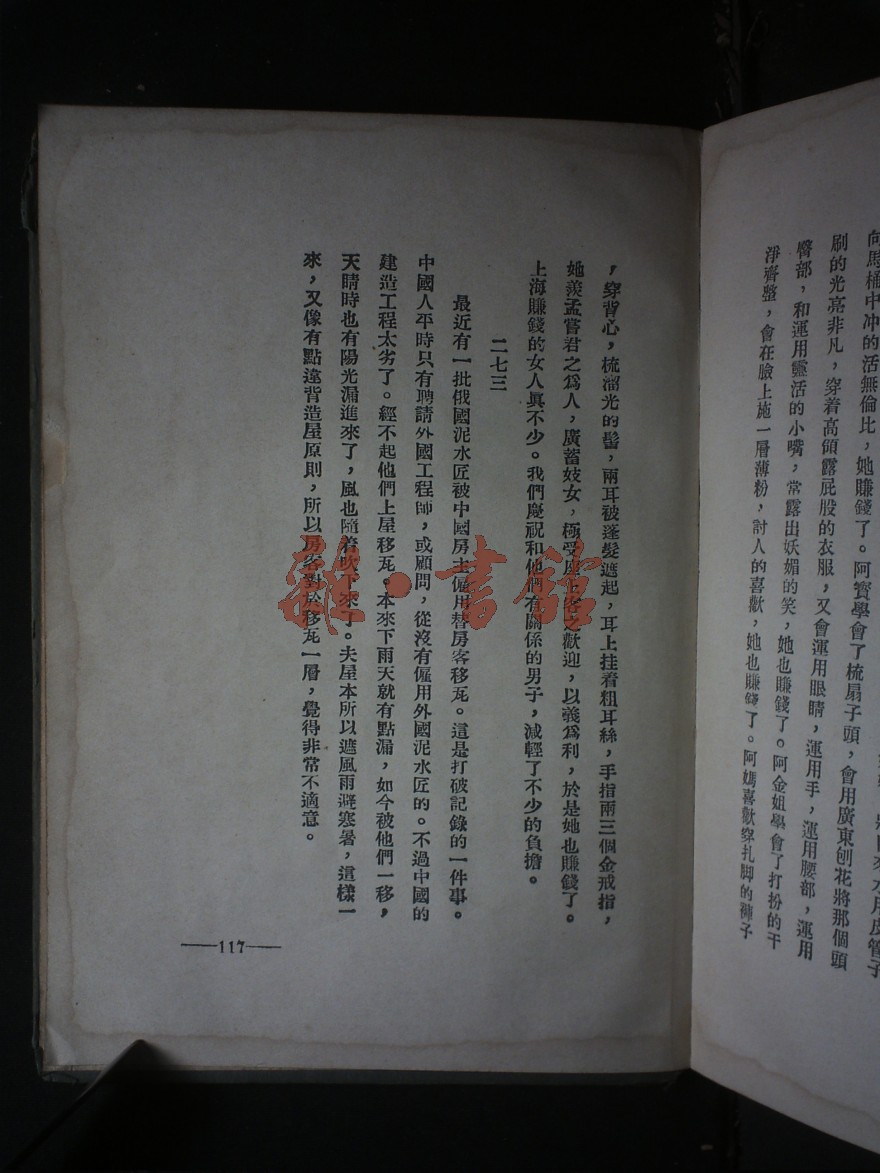 向馬桶中冲的活無倫比，她賺錢了。阿寶學會了梳扇子頭，會用廣東刨花將那個頭
刷的光亮非凡，穿着高領露屁股的衣服，又會運用眼睛，運用手，運用腰部，運用
臀部，和運用靈活的小嘴，常露出妖媚的笑，她也賺錢了。阿金姐學會了打扮的干
淨齊整，會在臉上施一層薄粉，討人的喜歡，她也賺錢了。阿媽喜歡穿扎脚的褲子
，穿背心，梳溜光的髻，兩耳被蓬髮遮起，耳上挂着粗耳絲，手指兩三個金戒指，
她羨孟嘗君之爲人，廣蓄妓女，極受座上客之歡迎，以義爲利，於是她也賺錢了。
上海賺錢的女人眞不少。我們慶祝和他們有關係的男子，減輕了不少的負擔。
二七三
最近有一批俄國泥水匠被中國房主僱用替房客移瓦。這是打破記錄的一件事。
中國人平時只有聘請外國工程師，或顧問，從沒有僱用外國泥水匠的。不過中國的
建造工程太劣了。經不起他們上屋移瓦。本來下雨天就有點漏，如今被他們一移，
天晴時也有陽光漏進來了，風也隨着吹下來了。夫屋本所以遮風雨避寒暑，這樣一
來，又像有點違背造屋原則，所以房客對於移瓦一層，覺得非常不適意。
——117——
雜·書館